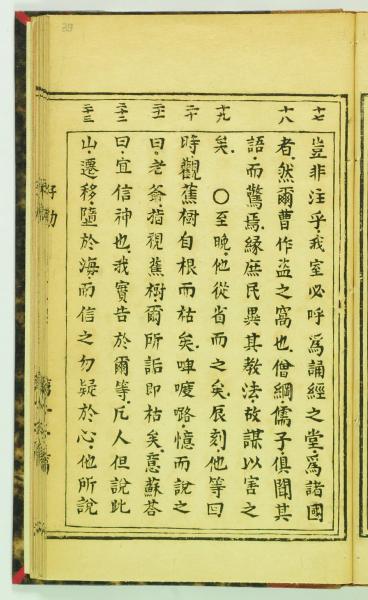 十七 豈非注乎我室必呼爲誦經之堂爲諸國
十八 者然爾曹作盗之窩也僧綱儒子俱聞其
語而驚焉緣庶民異其敎法故謀以害之
十九 矣○至晚他從省而之矣辰刻他等囘
二十 時觀蕉樹自根而枯矣啤嚄𡀔憶而說之
二十一 曰老爺指視蕉樹爾所詬即枯矣意蘇荅
二十二 曰宜信神也我實告於爾等凡人但說此
二十三 山遷移隨於海而信之勿疑於心他所說